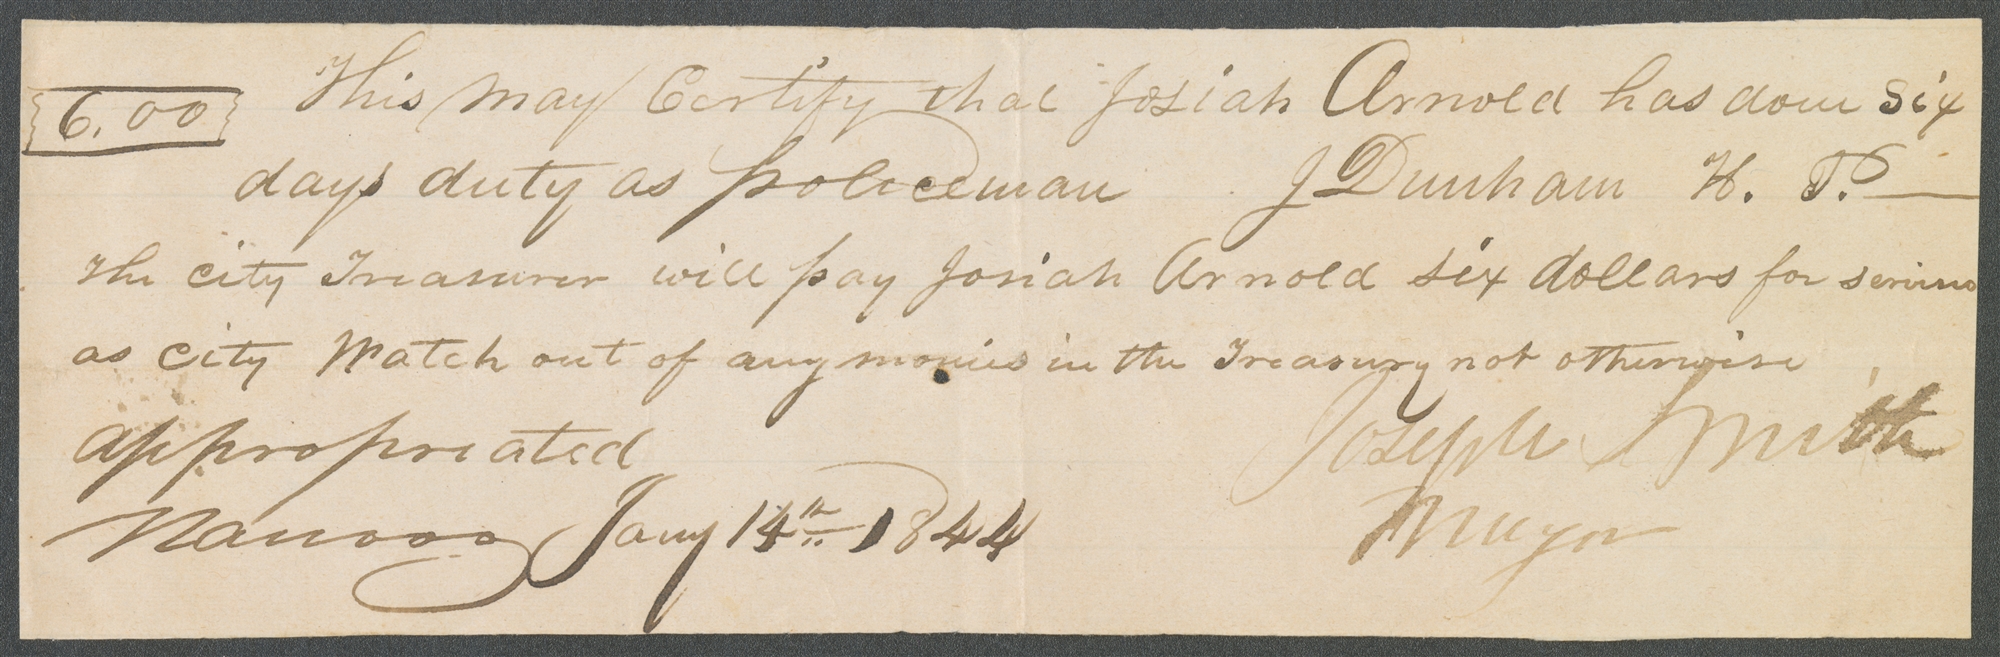 6.00 This may Certify that Josiah Arnold has done six
days duty as policeman J Dunham H. P.
the city Treasurer will pay Josiah Arnold six dollars for servises
as city Watch out of any monies in the Treasury not otherwise
appropriated Joseph Smith
Nauvoo Jany 14th 1844 Mayor